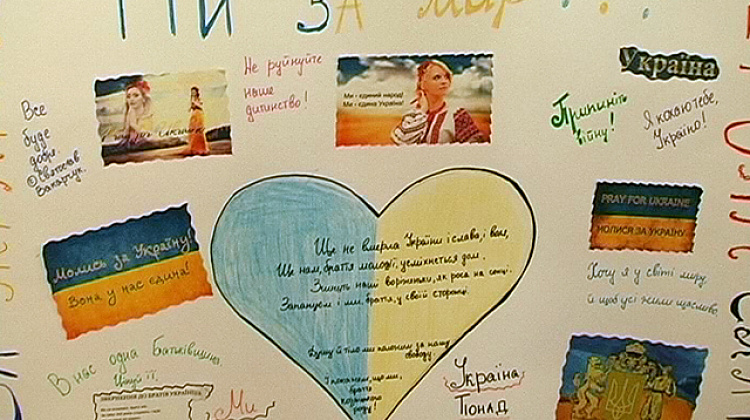 Ми ЗА мир!
Не руйнуйте
наше
дитинство!
Все
буде
добре.
©Святослав
Вакарчук.
Ми - єдиний народ!
Ми - єдина Україна!
Україна
Припиніть
війну!
Я кохаю тебе,
Україно!
PRAY FOR UKRAINE
МОЛИСЯ ЗА УКРАЇНУ
Молись за Україну!
Вона у нас єдина!
Ще не вмерла України і слава, і воля,
Ще нам, браття молодії, усміхнеться доля.
Згинуть наші воріженьки, як роса на сонці.
Запануєм і ми, браття, у своїй сторонці.
Душу й тіло ми положим за нашу
свободу.
І покажем, що ми,
браття
козацького
роду!
Хочу я у світі миру,
й щоб усі жили щасливо.
В нас одна Батьківщина.
Цінуй її.
ЗВЕРНЕННЯ ДО БРАТІВ УКРАЇНЦІВ
Ми
Україна
Понад